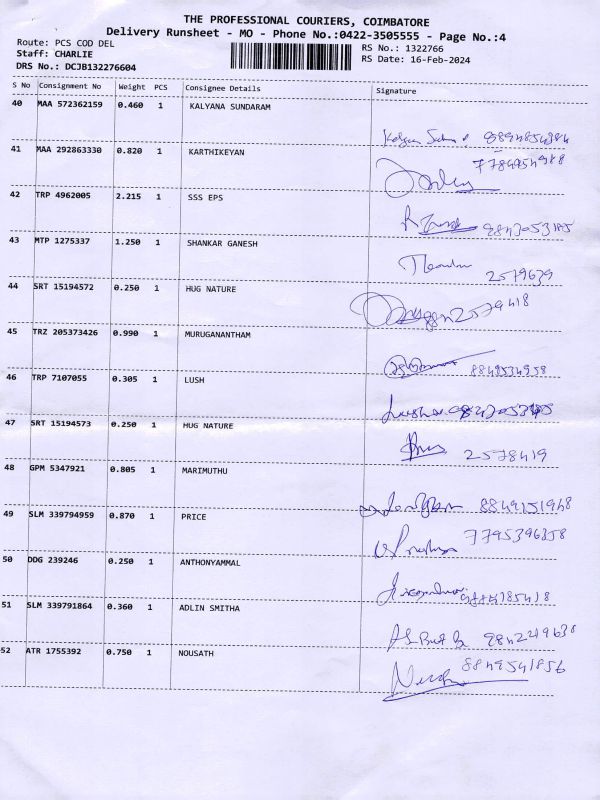 THE PROFESSIONAL COURIERS, COIMBATORE
Delivery Runsheet - MO - Phone No.:0422-3505555 - Page No.:4
Route: PCS COD DEL
RS No.: 1322766
Staff: CHARLIE
RS Date: 16-Feb-2024
DRS No.: DCJB132276604
S No Consignment No Weight PCS Consignee Details Signature
40 MAA 572362159 0.460 1 KALYANA SUNDARAM
41 MAA 292863330 0.820 1 KARTHIKEYAN
42 TRP 4962005 2.215 1 SSS EPS
43 MTP 1275337 1.250 1 SHANKAR GANESH
2579639
44 SRT 15194572 0.250 1 HUG NATURE
2579418
45 TRZ 205373426 0.990 1 MURUGANANTHAM
46 TRP 7107055 0.305 1 LUSH
47 SRT 15194573 0.250 1 HUG NATURE
2578419
48 GPM 5347921 0.805 1 MARIMUTHU
8849151968
49 SLM 339794959 0.870 1 PRICE
7795396358
50 DDG 239246 0.250 1 ANTHONYAMMAL
51 SLM 339791864 0.360 1 ADLIN SMITHA
52 ATR 1755392 0.750 1 NOUSATH
8849541856